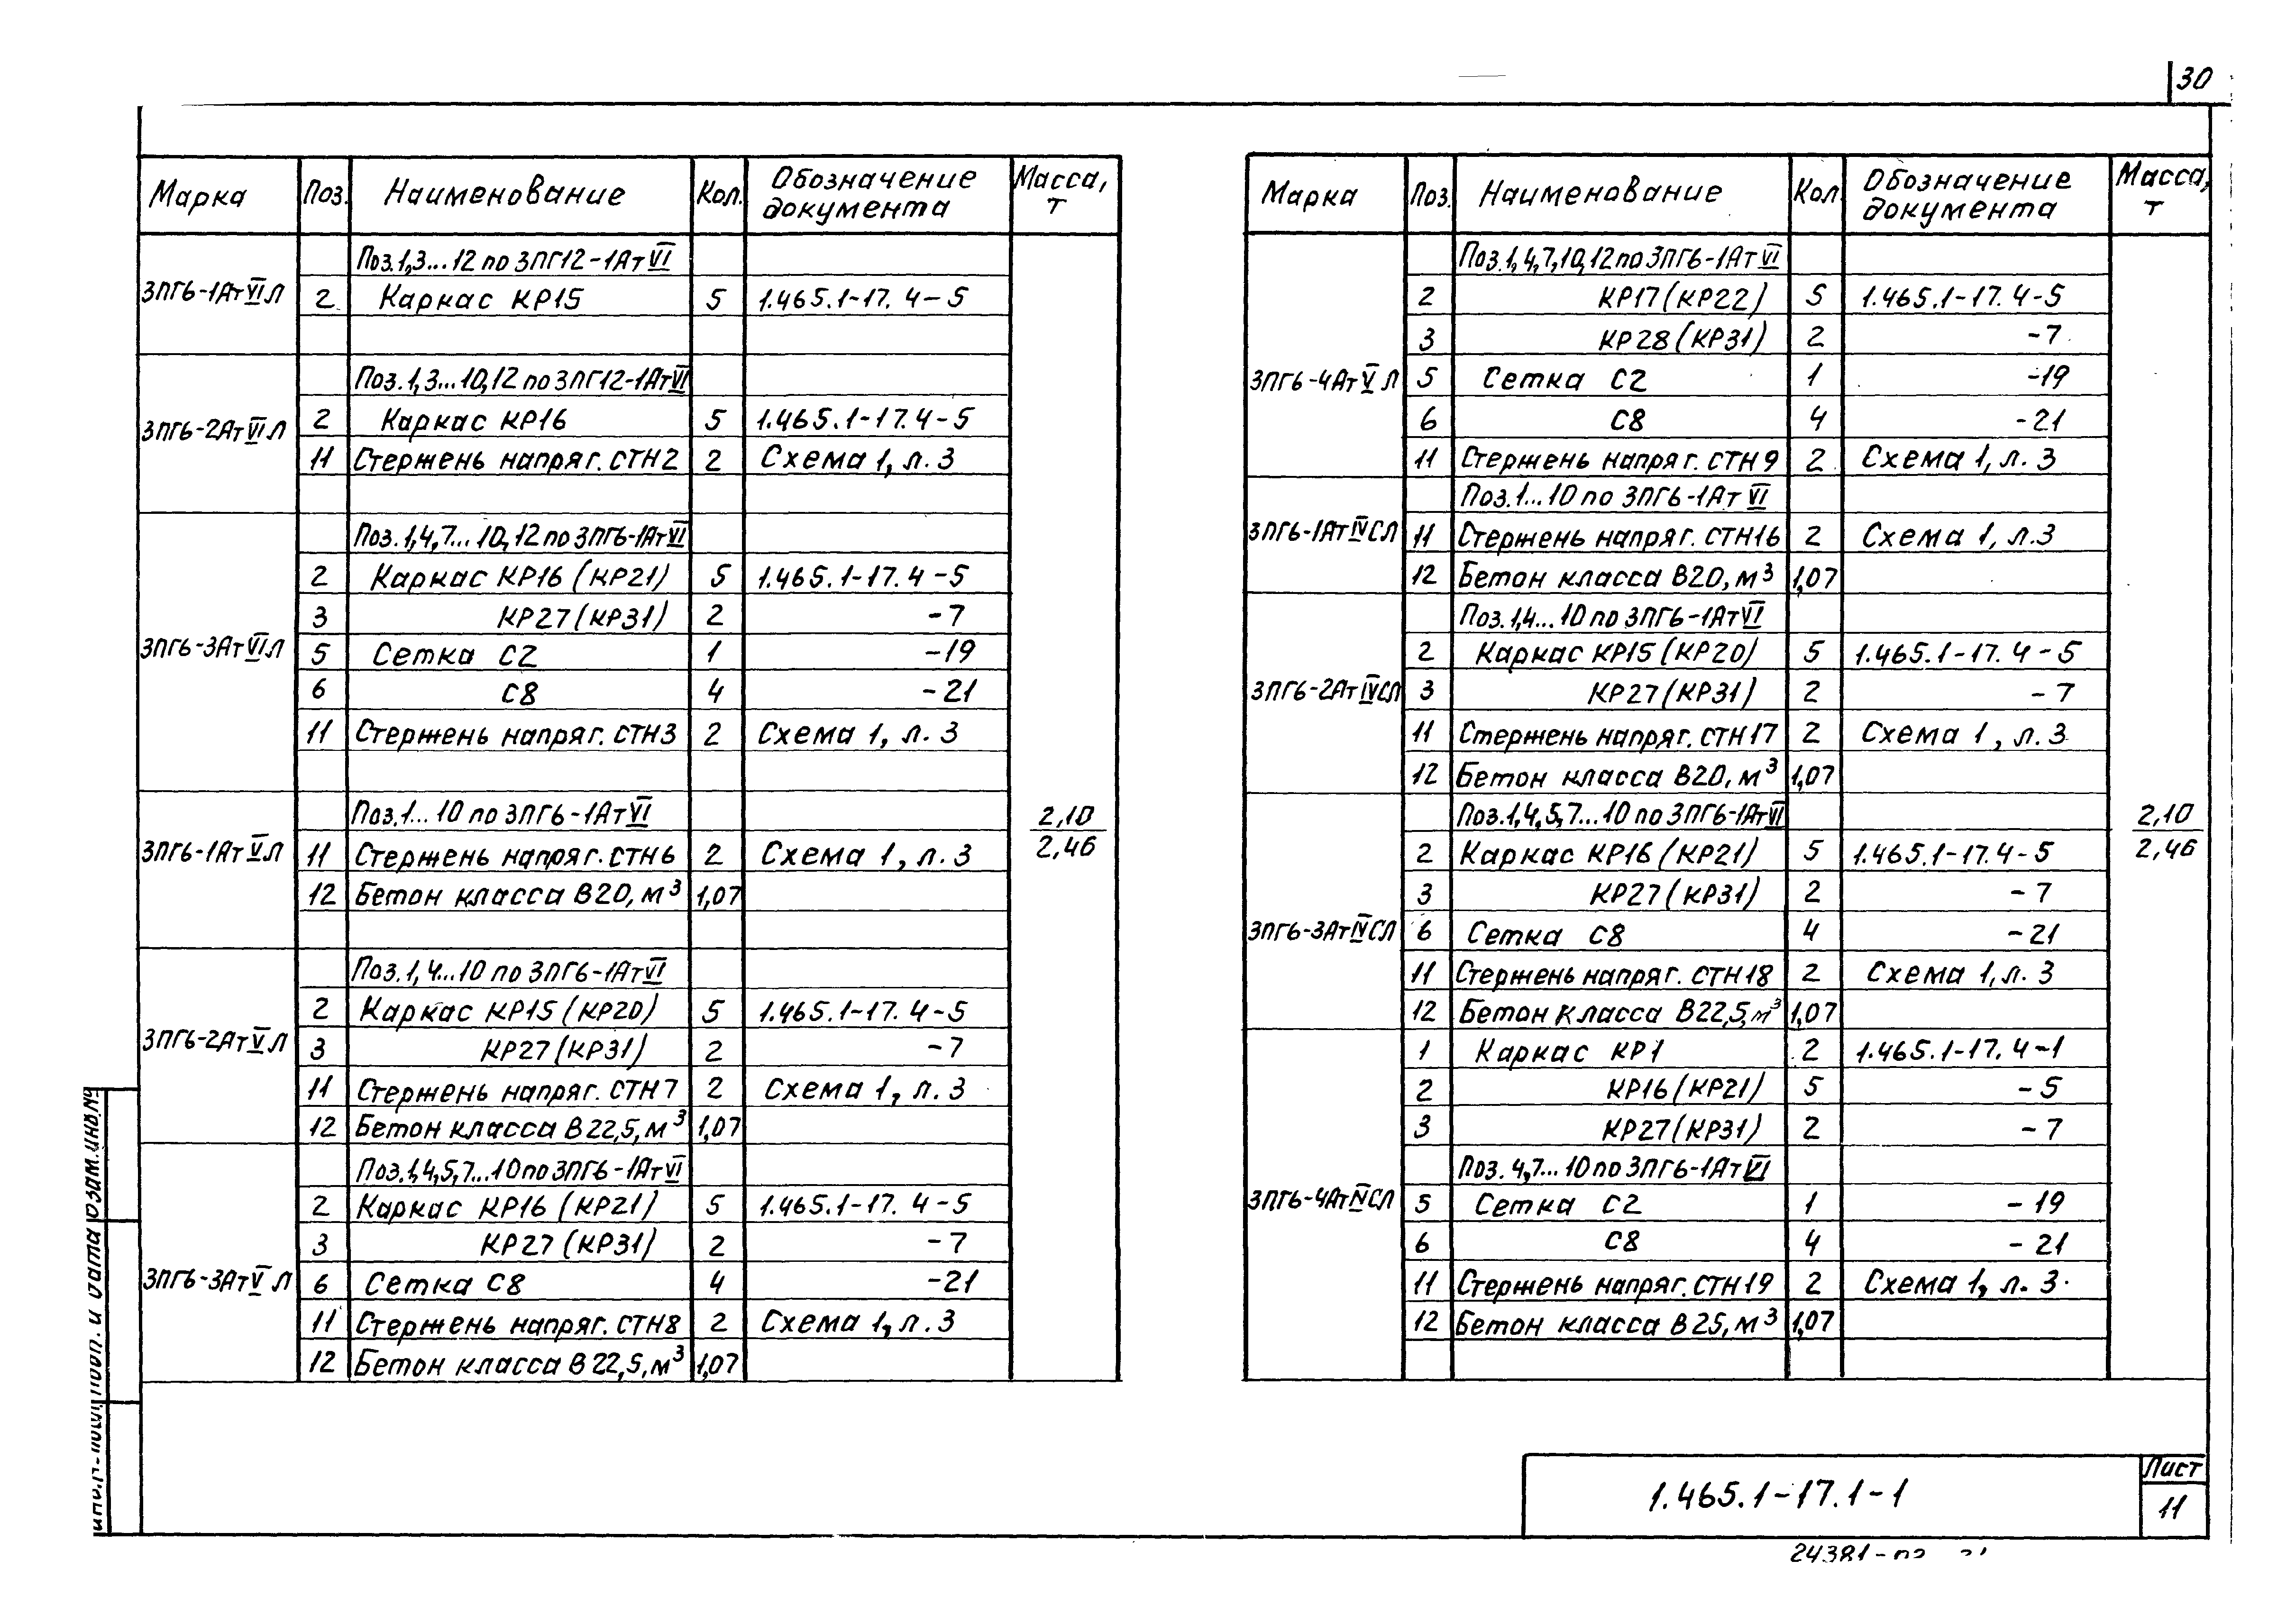 30
Марка Поз. Наименование Кол. Обозначение документа Масса, т
Поз.1,3...12 по 3ПГ12-1АтVI
3ПГ6-1АтVIЛ
2 Каркас КР15 5 1.465.1-17. 4-5
Поз.1,3...10,12 по 3ПГ12-1АтVI
3ПГ6-2АтVIЛ
2 Каркас КР16 5 1.465.1-17.4-5
11 Стержень напряг. СТН2 2 Схема 1, л. 3
Поз.1,4,7...10,12 по 3ПГ6-1АтVI
2 Каркас КР16 (КР21) 5 1.465.1-17. 4-5
3 КР27(КР31) 2 -7
3ПГ6-3АтVIЛ
5 Сетка С2 1 -19
6 С8 4 -21
11 Стержень напряг. СТН3 2 Схема 1, л. 3
Поз.1...10 по 3ПГ6-1АтVI
3ПГ6-1АтVЛ
11 Стержень напряг. СТН6 2 Схема 1, л. 3
12 Бетон класса В20, м³ 1,07
2,10
2,46
Поз.1,4...10 по 3ПГ6-1АтVI
2 Каркас КР15 (КР20) 5 1.465.1-17. 4-5
3ПГ6-2АтVЛ
3 КР27(КР31) 2 -7
11 Стержень напряг. СТН7 2 Схема 1, л. 3
12 Бетон класса В22,5, м³ 1,07
Поз.1,4,5,7...10 по 3ПГ6-1АтVI
2 Каркас КР16 (КР21) 5 1.465.1-17. 4-5
3 КР27 (КР31) 2 -7
3ПГ6-3АтVЛ
6 Сетка С8 4 -21
11 Стержень напряг. СТН8 2 Схема 1, л. 3
12 Бетон класса В22,5, м³ 1,07
Марка Поз. Наименование Кол. Обозначение документа Масса, т
Поз.1,4,7,10,12 по 3ПГ6-1АтVI
2 КР17(КР22) 5 1.465.1-17. 4-5
3 КР28(КР31) 2 -7
3ПГ6-4АтVЛ
5 Сетка С2 1 -19
6 С8 4 -21
11 Стержень напряг. СТН9 2 Схема 1, л. 3
Поз.1...10 по 3ПГ6-1АтVI
3ПГ6-1АтIVСЛ
11 Стержень напряг. СТН16 2 Схема 1, л.3
12 Бетон класса В20, м³ 1,07
Поз.1,4...10 по 3ПГ6-1АтVI
2 Каркас КР15 (КР20) 5 1.465.1-17. 4-5
3ПГ6-2АтIVСЛ
3 КР27(КР31) 2 -7
11 Стержень напряг. СТН17 2 Схема 1, л. 3
12 Бетон класса В20, м³ 1,07
Поз.1,4,5,7...10 по 3ПГ6-1АтVI
2,10
2,46
2 Каркас КР16 (КР21) 5 1.465.1-17.4-5
3 КР27(КР31) 2 -7
3ПГ6-3АтIVСЛ
6 Сетка С8 4 -21
11 Стержень напряг. СТН18 2 Схема 1, л. 3
12 Бетон класса В22,5, м³ 1,07
1 Каркас КР1 2 1.465.1-17. 4-1
2 КР16(КР21) 5 -5
3 КР27(КР31) 2 -7
Поз. 4,7...10 по 3ПГ6-1АтVI
3ПГ6-4АтIVСЛ
5 Сетка С2 1 -19
6 С8 4 -21
11 Стержень напряг. СТН19 2 Схема 1, л. 3
12 Бетон класса В25, м³ 1,07
1.465.1-17.1-1
Лист
11
24381
Взам.инв.№
подп. и дата